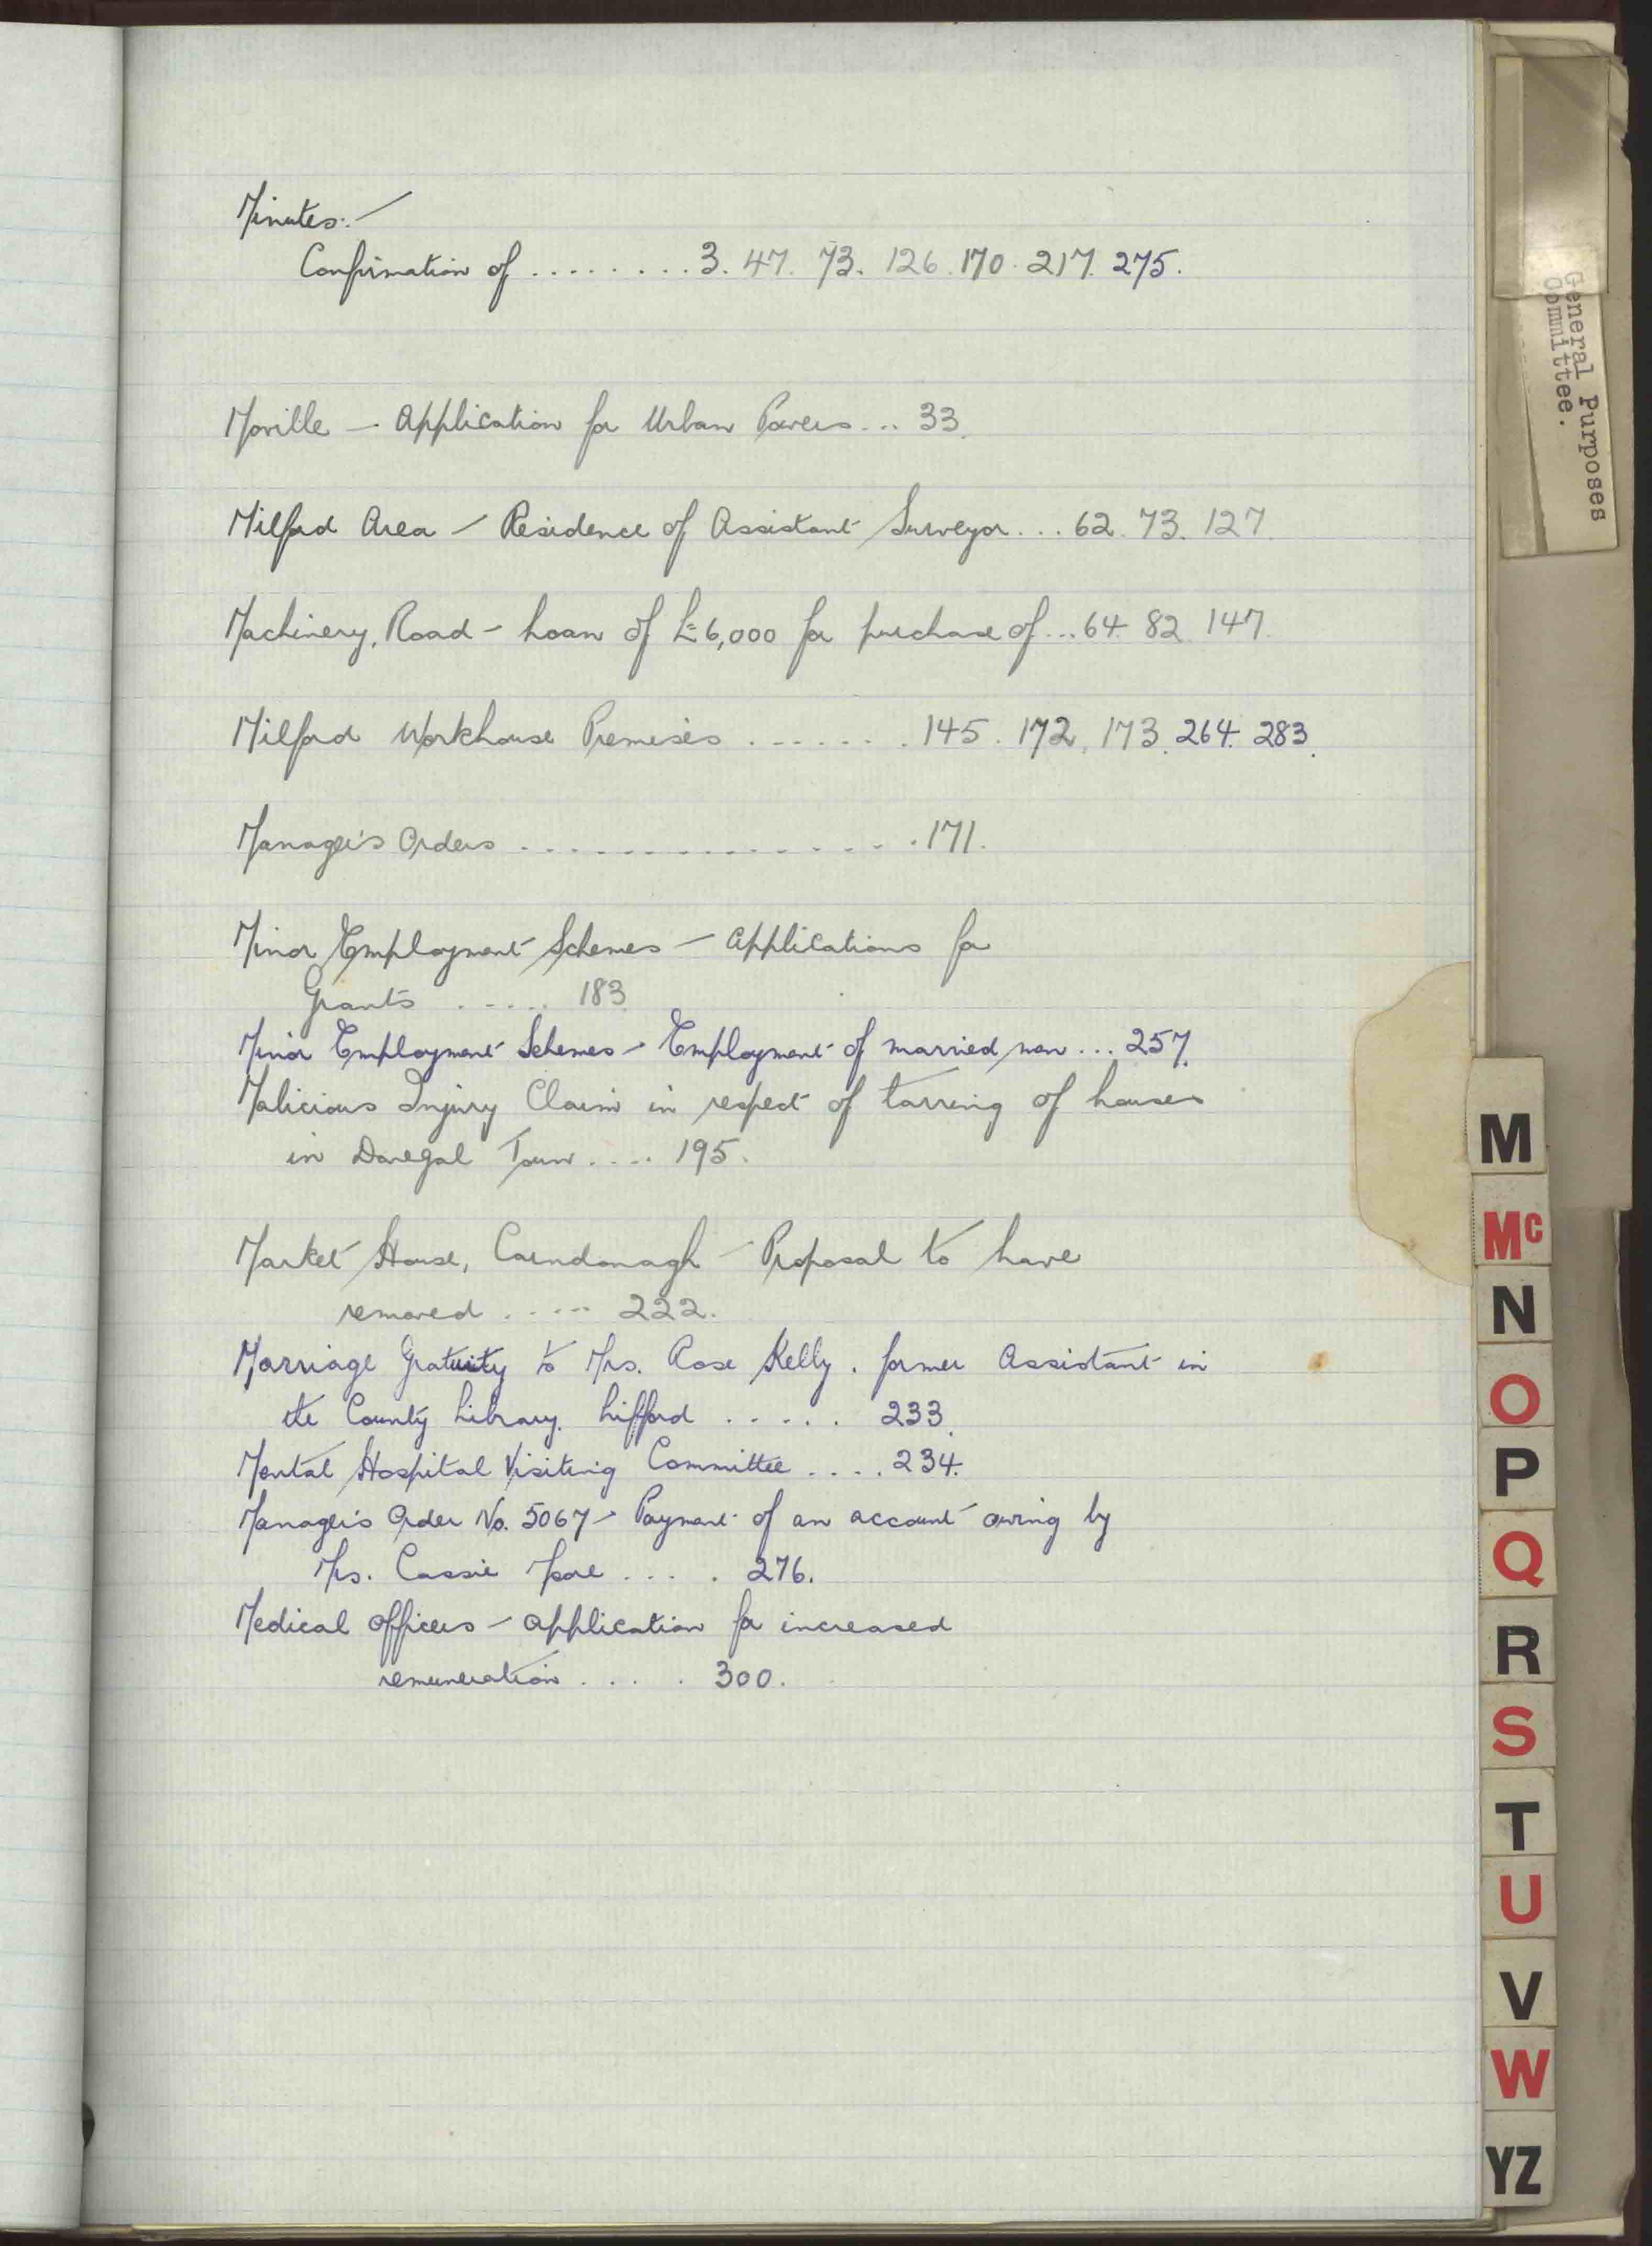 Minutes:-
Confirmation of ......... 3. 47. 73. 126. 170. 217. 275.
Moville - Application for Urban Powers ... 33.
Milford Area - Residence of Assistant Surveyor ... 62. 73. 127.
Machinery, Road - Loan of £6,000 for purchase of ... 64. 82. 147.
Milford Workhouse Premises ....... 145. 172. 173. 264. 283.
Manager's Orders ................ 171.
Minor Employment Schemes - Applications for
Grants ..... 183.
Minor Employment Schemes - Employment of married men ... 257.
Malicious Injury Claim in respect of tarring of houses
in Donegal Town .... 195.
Market House, Carndonagh - Proposal to have
removed ..... 222.
Marriage Gratuity to Mrs. Rose Kelly, former Assistant in
the County Library, Lifford ..... 233.
Mental Hospital Visiting Committee .... 234.
Manager's Order No. 5067 - Payment of an account owing by
Mrs. Cassie .... 276.
Medical Officers - application for increased
remuneration .... 300.
General Purposes
Committee.
M
Mc
N
O
P
Q
R
S
T
U
V
W
YZ